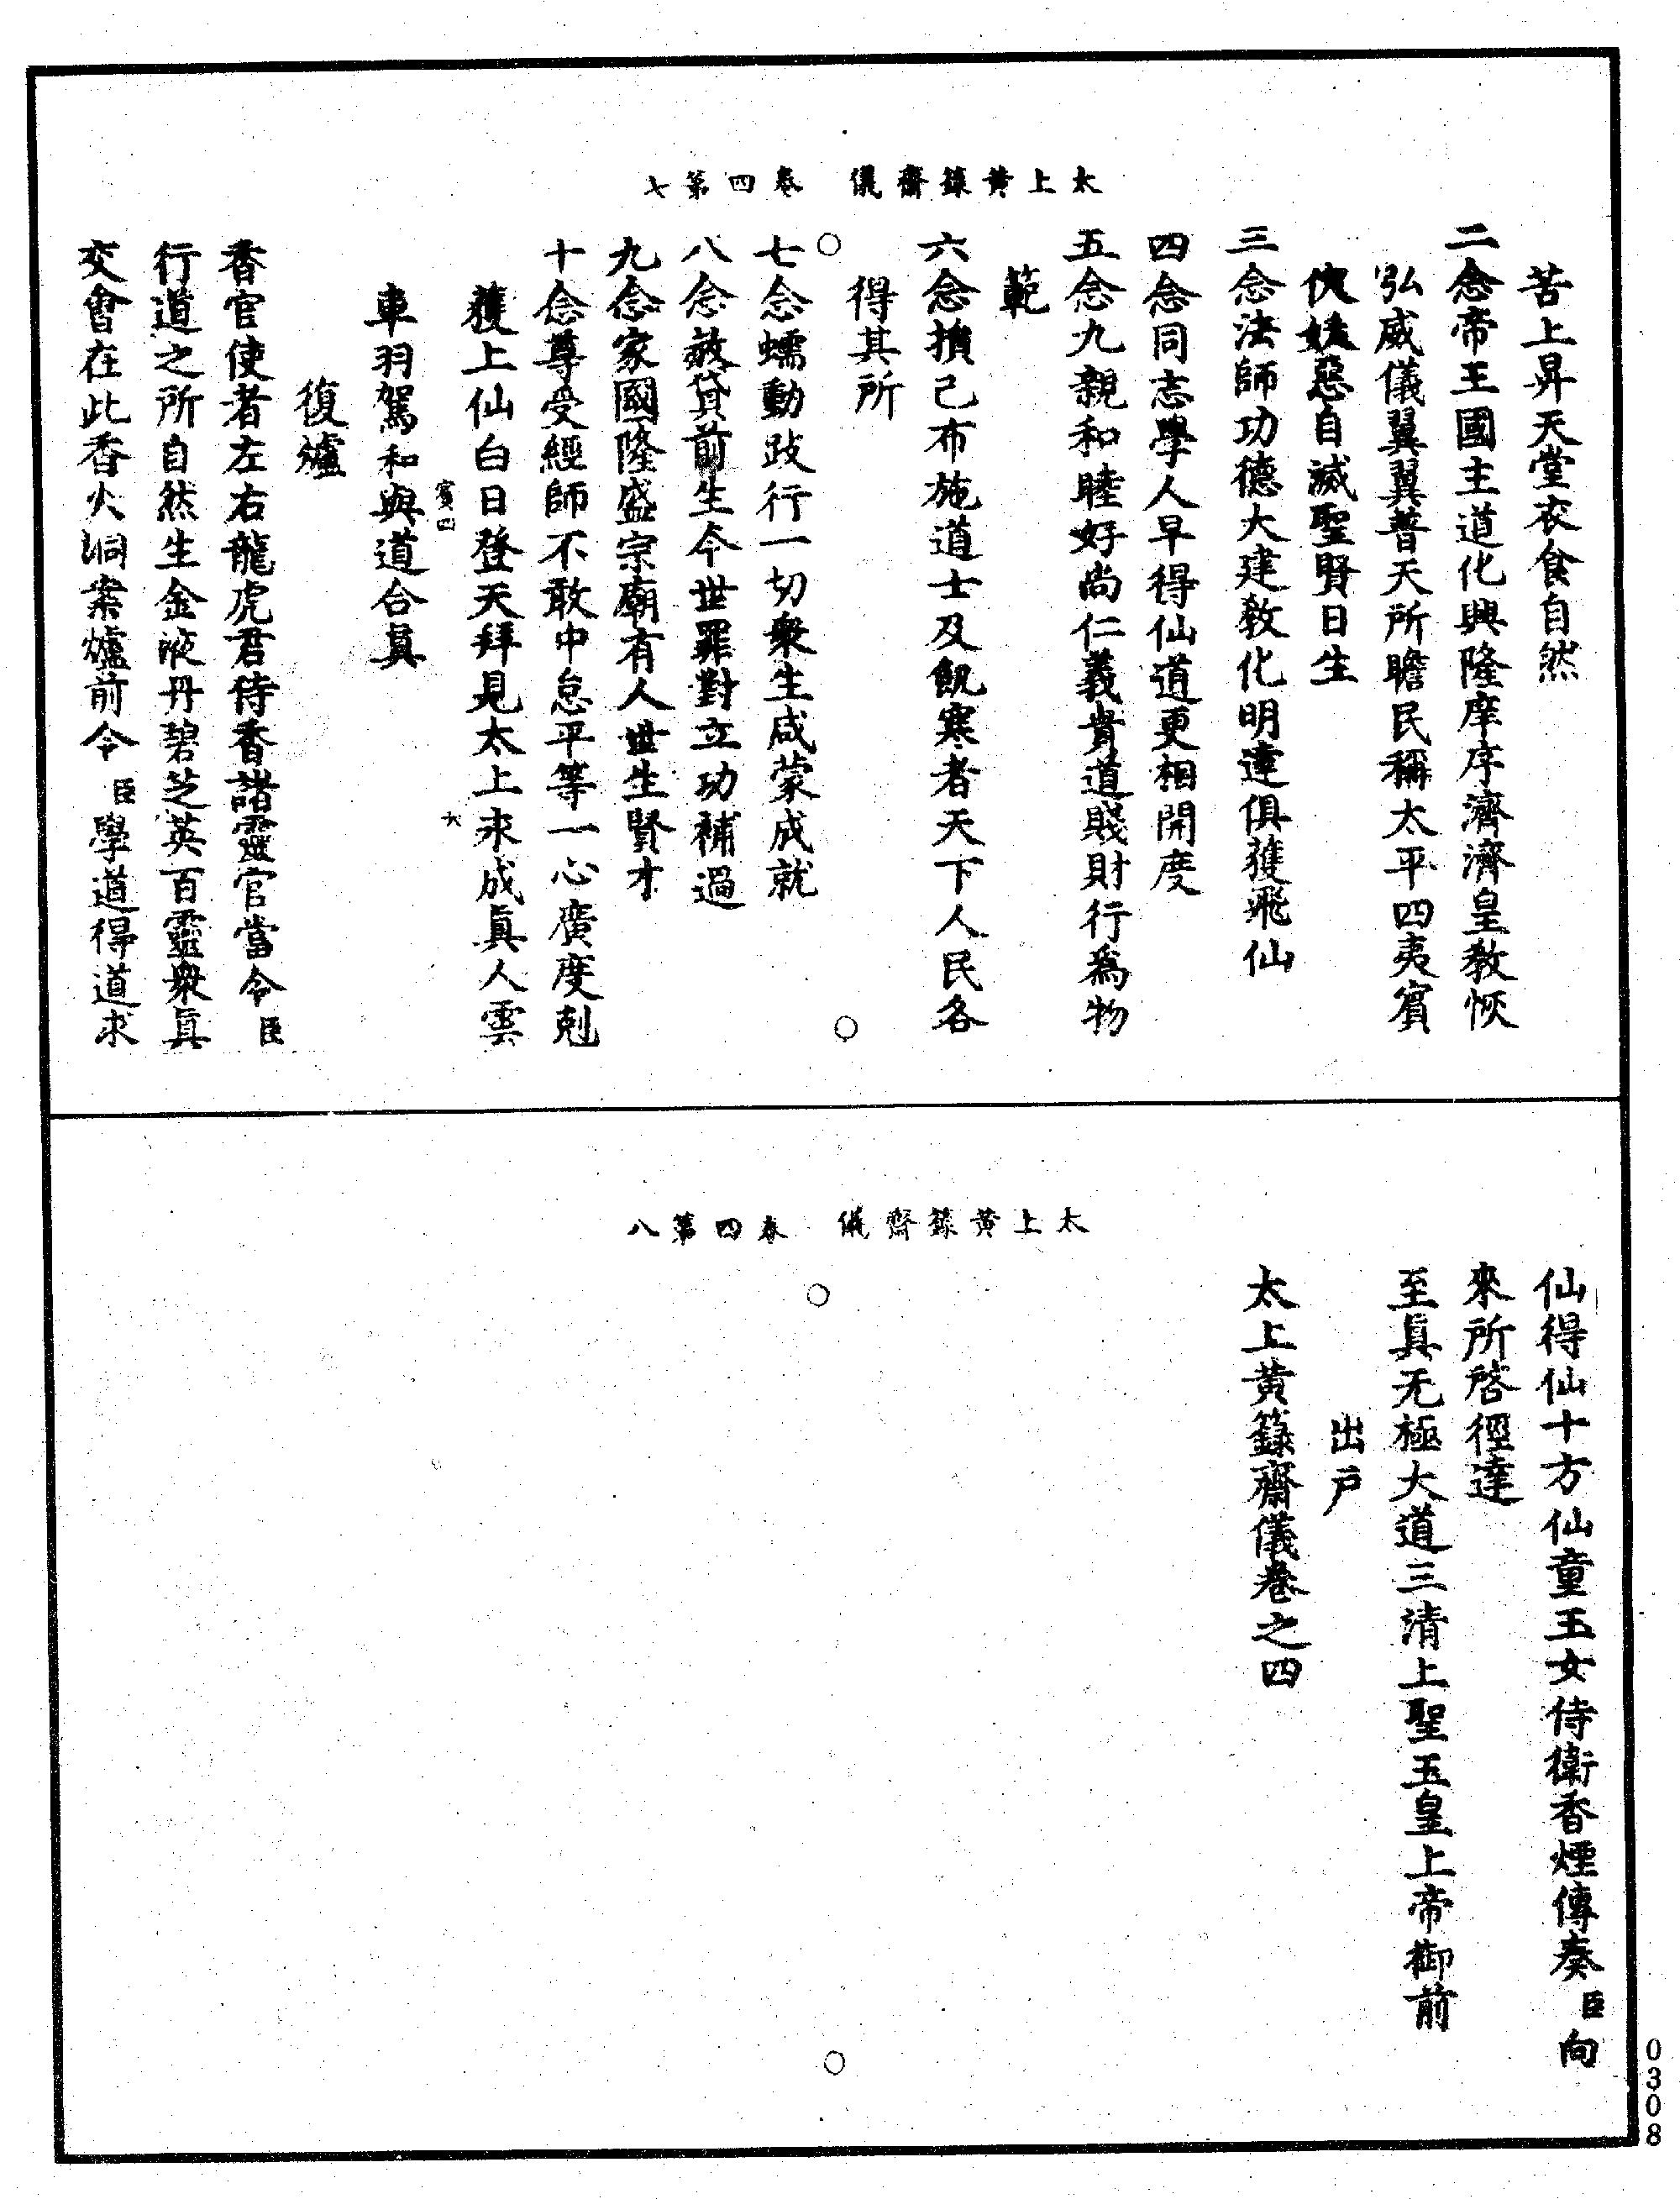 太上黃籙齋儀　卷四第七
苦上昇天堂衣食自然
二念帝王國主道化興隆庠序濟濟皇教恢
弘威儀翼翼普天所瞻民稱太平四夷賓
伏妖惡自滅聖賢日生
三念法師功德大建教化明達俱獲飛仙
四念同志學人早得仙道更相開度
五念九親和睦好尚仁義貴道賤財行為物
範
六念損己布施道士及飢寒者天下人民各
得其所
七念蠕動跂行一切衆生咸蒙成就
八念赦貸前生今世罪對立功補過
九念家國隆盛宗廟有人世生賢才
十念尊受經師不敢中怠平等一心廣度剋
獲上仙白日登天拜見太上求成眞人雲
賓四
車羽駕和與道合眞
復爐
香官使者左右龍虎君侍香諸靈官當令臣
行道之所自然生金液丹碧芝英百靈衆眞
交會在此香火洞案爐前令臣學道得道求
太上黃籙齋儀　卷四第八
仙得仙十方仙童玉女侍衛香煙傳奏臣向
來所啓徑達
至眞无極大道三清上聖玉皇上帝御前
出戶
太上黃籙齋儀卷之四
0308